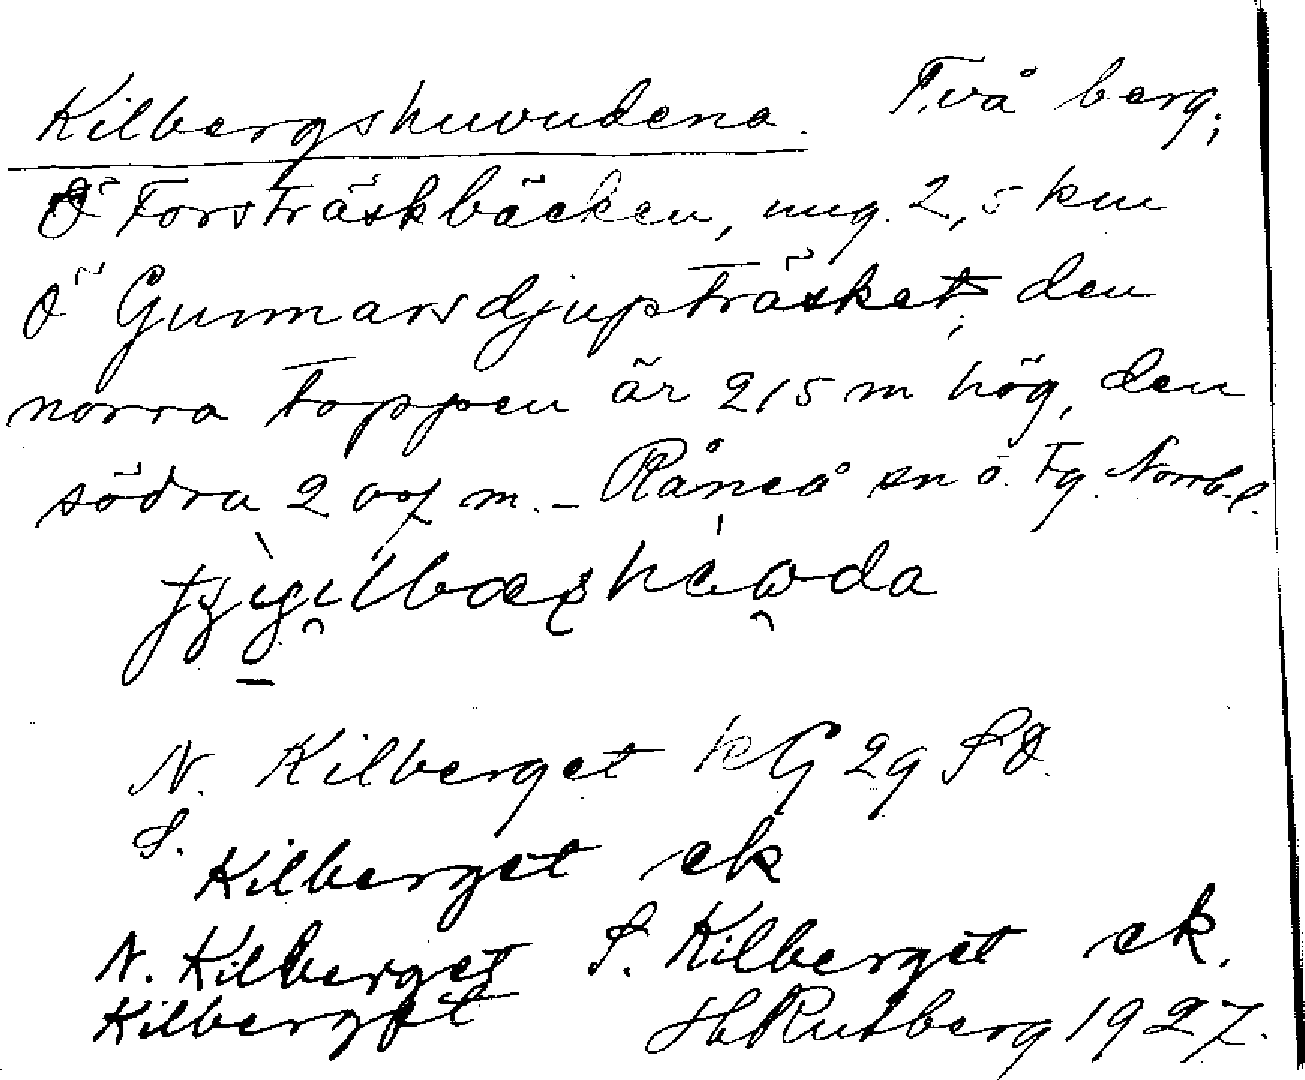 Kilbergshuvudena. Två berg;
Ö Forsträskbäcken, ung. 2,5 km
Ö Gunnarsdjupträsket, den
norra toppen är 215 m hög, den
södra 207 m. – Råneå sn ö. Fg. Norrb. l.
N. Kilberget kG 29 SO.
S. Kilberget ek
N. Kilberget S. Kilberget ek.
Kilberget H Rutberg 1927.